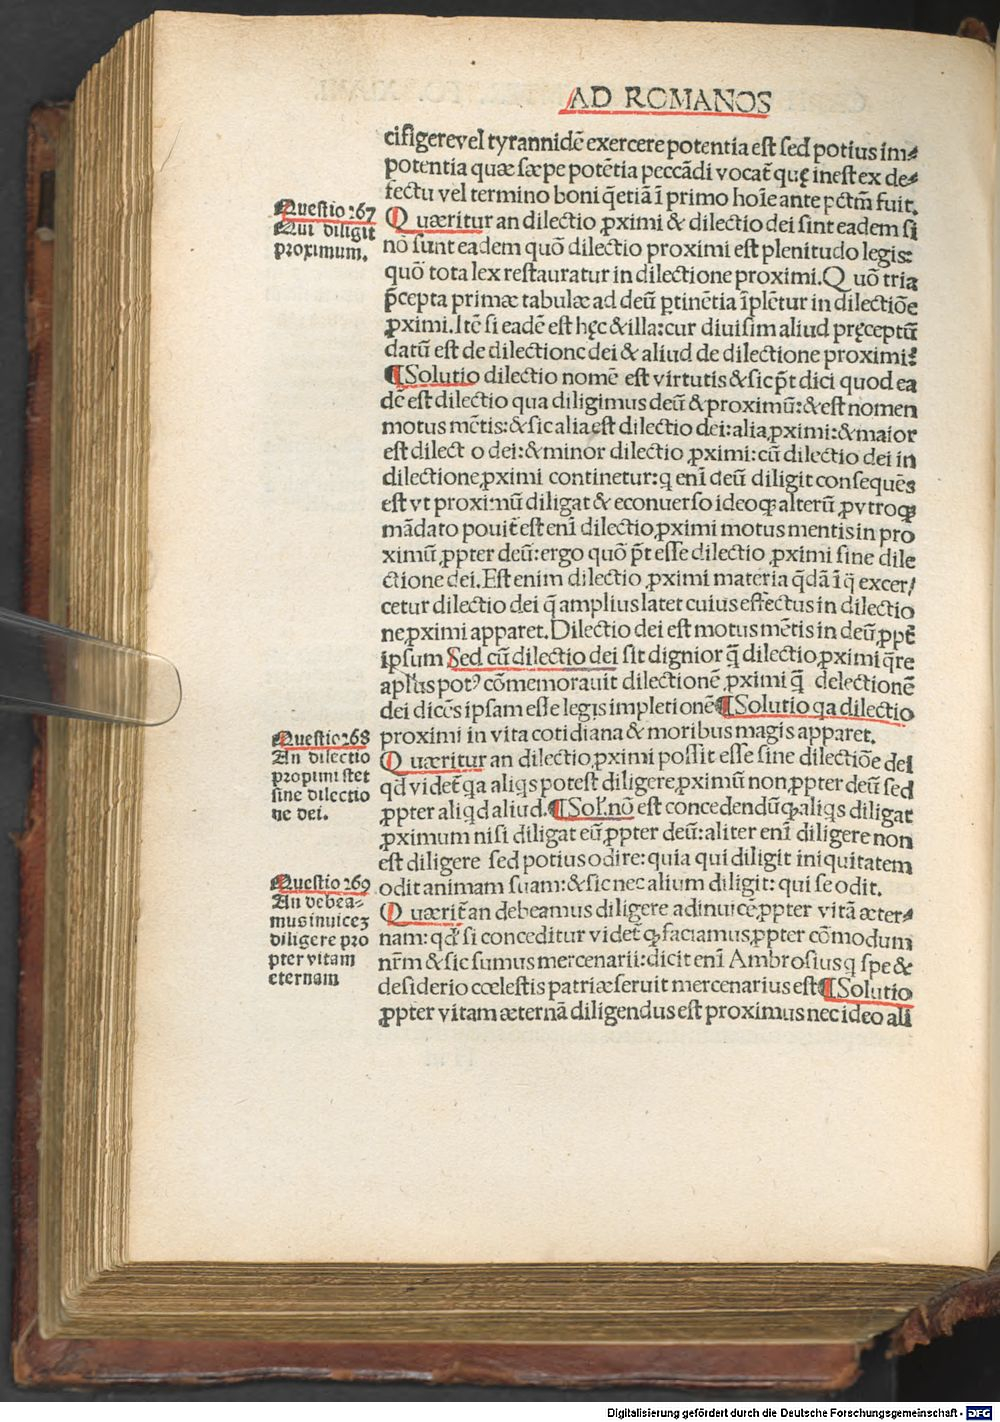 AD ROMANOS
cifigere vel tyrannidē exercere potentia est sed potius im⸗
potentia quæ sæpe potētia peccādi vocat̄ quę inest ex de⸗
fectu vel termino boni q̄ etiā ī primo hoīe ante pctm̄ fuit.
Questio 267
Qui diligit
proximum.
Quæritur an dilectio ꝓximi & dilectio dei sint eadem si
nō sunt eadem quō dilectio proximi est plenitudo legis:
quō tota lex restauratur in dilectione proximi. Quō tria
p̄cepta primæ tabulæ ad deū ꝑtinētia īplētur in dilectiōe
ꝓximi. Itē si eadē est hęc & illa: cur diuisim aliud pręceptū
datū est de dilectione dei & aliud de dilectione proximi?
¶ Solutio dilectio nomē est virtutis & sic p̄t dici quod ea
dē est dilectio qua diligimus deū & proximū: & est nomen
motus mētis: & sic alia est dilectio dei: alia ꝓximi: & maior
est dilect o dei: & minor dilectio ꝓximi: cū dilectio dei in
dilectione ꝓximi continetur: q enī deū diligit consequēs
est vt proximū diligat & econuerso ideoqꝫ alterū ꝓ vtroqꝫ
mādato pouit̄ est enī dilectio ꝓximi motus mentis in pro
ximū ꝓpter deū: ergo quō p̄t esse dilectio ꝓximi sine dile
ctione dei. Est enim dilectio ꝓximi materia q̄dā ī q̄ excer/
cetur dilectio dei q̄ amplius latet cuius effectus in dilectio
ne ꝓximi apparet. Dilectio dei est motus mētis in deū ꝓpt̄
ipsum Sed cū dilectio dei sit dignior q̄ dilectio ꝓximi q̄re
apl̄us potꝰ cōmemorauit dilectionē ꝓximi q̄ delectionē
dei dicēs ipsam esse legis impletionē ¶ Solutio qa dilectio
proximi in vita cotidiana & moribus magis apparet.
Questio 268
An dilectio
proximi stet
sine dilectio
ne dei.
Quæritur an dilectio ꝓximi possit esse sine dilectiōe dei
qd̄ videt̄ qa aliqs potest diligere ꝓximū non ꝓpter deū sed
ꝓpter aliqd aliud. ¶ Sol̄. nō est concedendū qꝫ aliqs diligat
ꝓximum nisi diligat eū ꝓpter deū: aliter enī diligere non
est diligere sed potius odire: quia qui diligit iniquitatem
odit animam suam: & sic nec alium diligit: qui se odit.
Questio 269
An debea⸗
mus inuiceꝫ
diligere pro
pter vitam
eternam
Quærit̄ an debeamus diligere adinuicē ꝓpter vitā æter⸗
nam: qd̄ si conceditur videt̄ qꝫ faciamus ꝓpter cōmodum
nr̄m & sic sumus mercenarii: dicit enī Ambrosius q spe &
desiderio cœlestis patriæ seruit mercenarius est ¶ Solutio
ꝓpter vitam æternā diligendus est proximus nec ideo ali
Digitalisierung gefördert durch die Deutsche Forschungsgemeinschaft - DFG